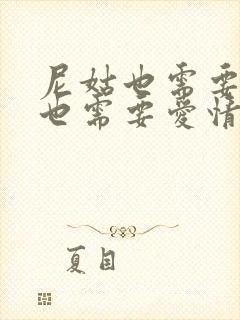 尼姑也需要
也需要愛情
夏目